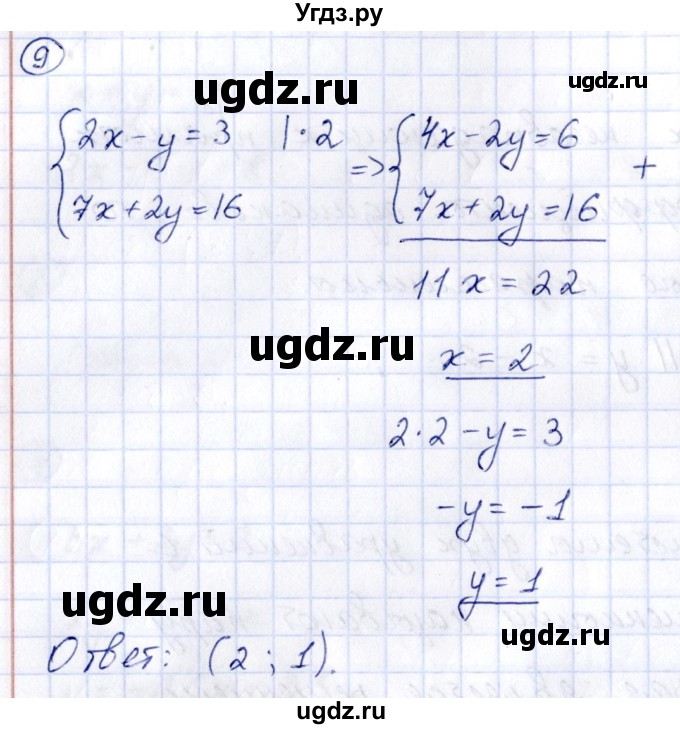 Угдз.ру
9
ugdz.ru
ugdz.ru
2x - y = 3 | · 2 => 4x - 2y = 6 +
7x + 2y = 16 7x + 2y = 16
11x = 22
ugdz.ru
x = 2
2 · 2 - y = 3
-y = -1
y = 1
ugdz.ru
ugdz.ru
Ответ: (2 ; 1).
ugdz.ru